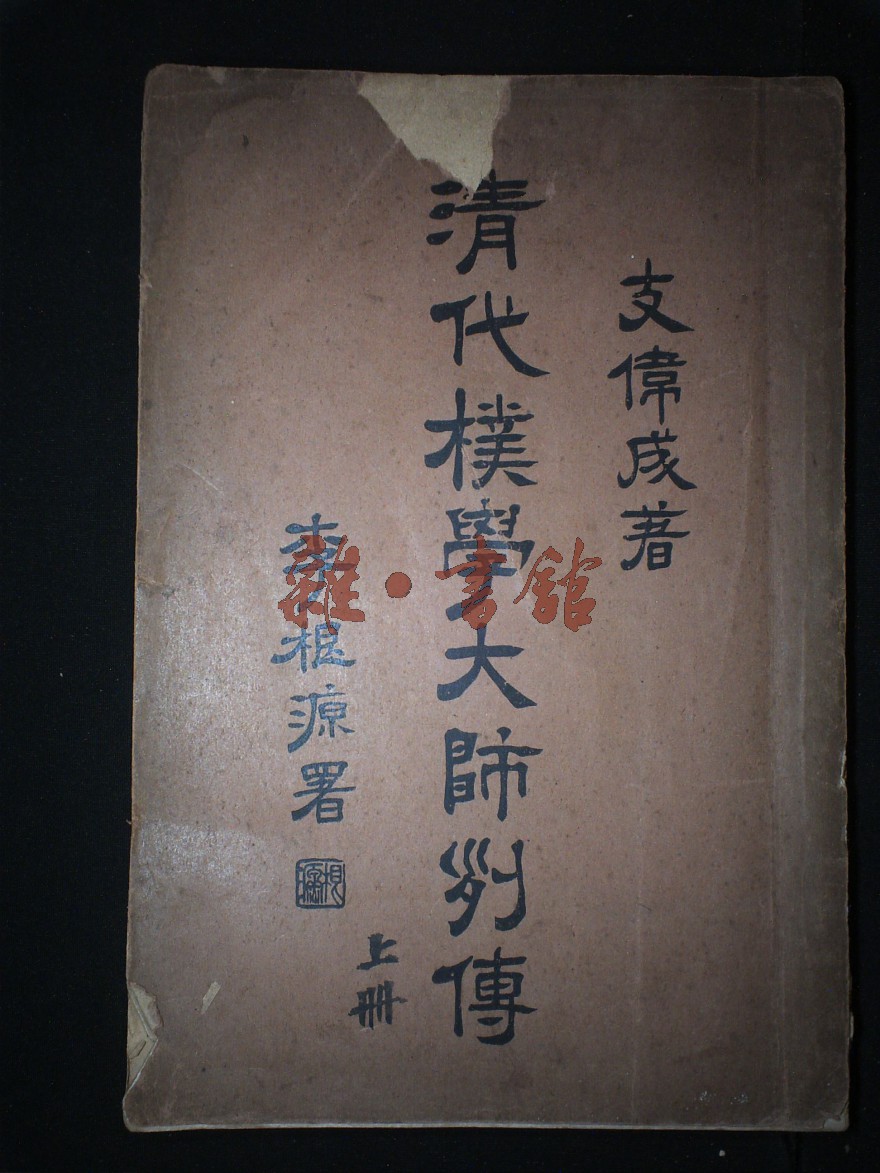 支偉成著
清代樸學大師列傳
上冊
李根源署
根源
雜·書館